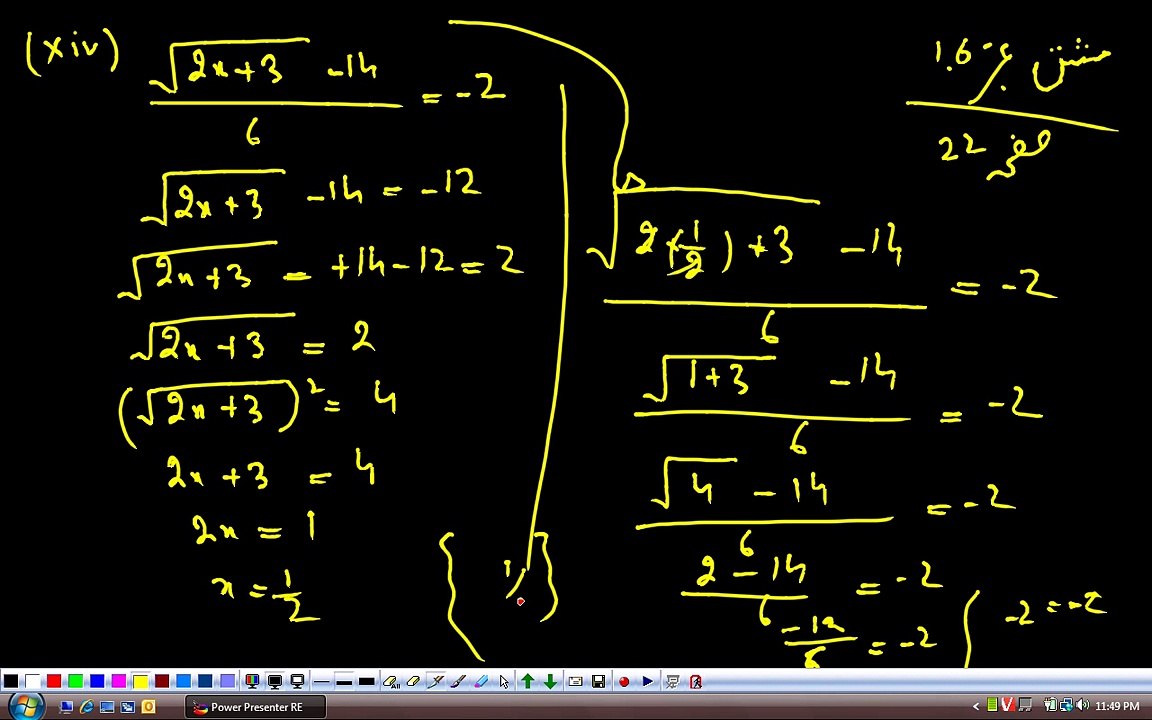 (xiv) (√(2x+3) -14)/6 = -2
√(2x+3) -14 = -12
√(2x+3) = +14-12 = 2
√(2x+3) = 2
(√(2x+3))² = 4
2x+3 = 4
2x = 1
x = 1/2
مشق نمبر 1.6
صفحہ 22
(√(2(1/2)+3) -14)/6 = -2
(√(1+3) -14)/6 = -2
(√4 -14)/6 = -2
(2-14)/6 = -2
-12/6 = -2
-2 = -2
{ 1/ }
Power Presenter RE
11:49 PM